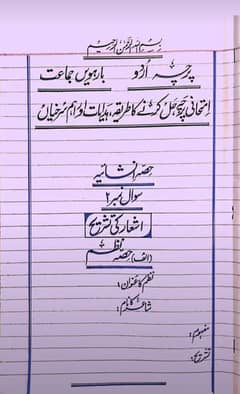 بسم اللہ الرحمن الرحیم
پرچہ اُردو بارہویں جماعت
امتحانی پرچہ حل کرنے کا طریقہ، ہدایات اور اہم سُرخیاں
حصہ انشائیہ
سوال نمبر ۲
اشعار کی تشریح
(الف) حصہ نظم
نظم کا عنوان:
شاعر کا نام:
مفہوم:
تشریح: